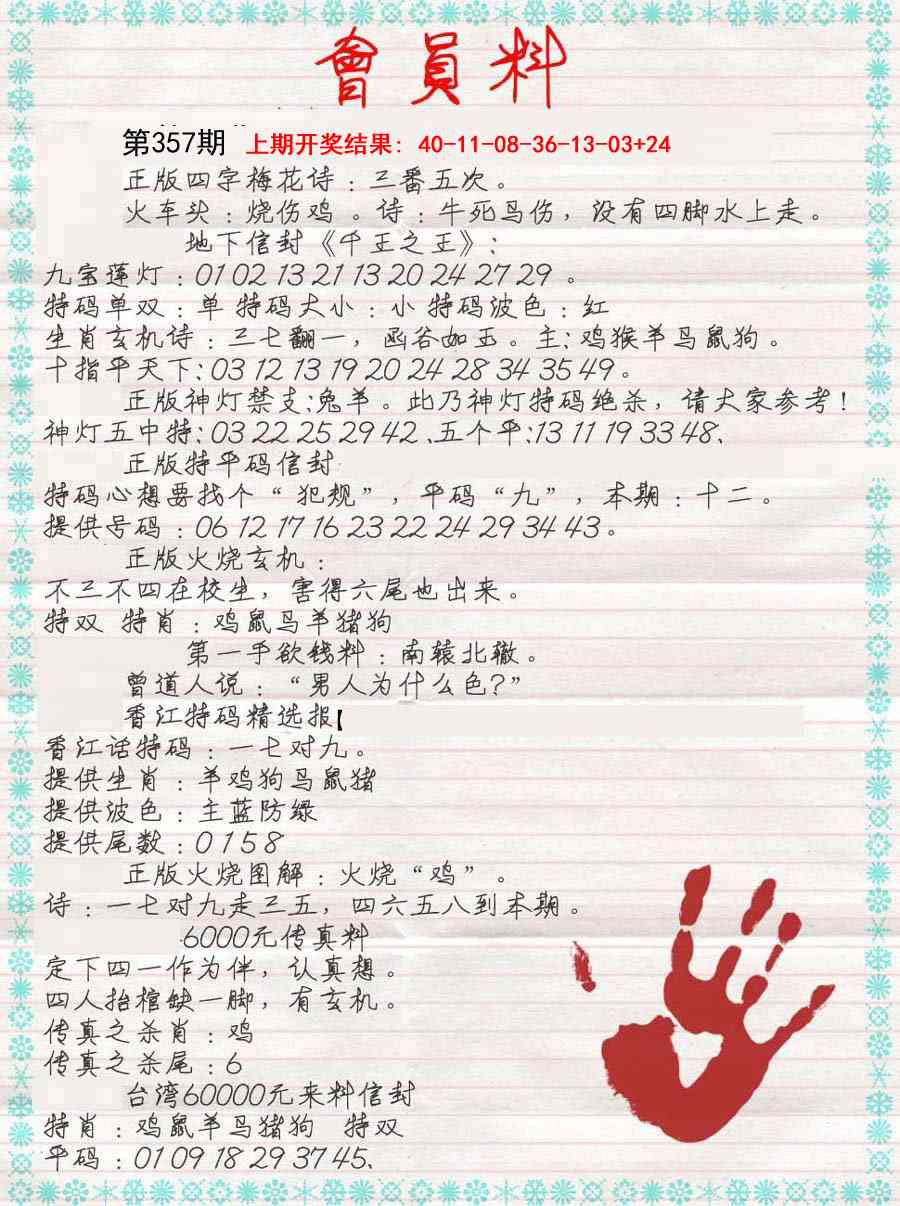 會員料
第357期 上期开奖结果: 40-11-08-36-13-03+24
正版四字梅花诗：三番五次。
火车头：烧伤鸡。诗：牛死鸟伤，没有四脚水上走。
地下信封《千王之王》：
九宝莲灯：01 02 13 21 13 20 24 27 29 。
特码单双：单 特码大小：小 特码波色：红
生肖玄机诗：三七翻一，函谷如玉。主：鸡猴羊马鼠狗。
十指平天下：03 12 13 19 20 24 28 34 35 49。
正版神灯禁支：兔羊。此乃神灯特码绝杀，请大家参考！
神灯五中特：03 22 25 29 42、五个平：13 11 19 33 48、
正版特平码信封
特码心想要找个“犯规”，平码“九”，本期：十二。
提供号码：06 12 17 16 23 22 24 29 34 43。
正版火烧玄机：
不三不四在校生，害得六尾也出来。
特双 特肖：鸡鼠马羊猪狗
第一手欲钱料：南辕北辙。
曾道人说：“男人为什么色?”
香江特码精选报【
香江话特码：一七对九。
提供生肖：羊鸡狗马鼠猪
提供波色：主蓝防绿
提供尾数：0 1 5 8
正版火烧图解：火烧“鸡”。
诗：一七对九走三五，四六五八到本期。
6000元传真料
定下四一作为伴，认真想。
四人抬棺缺一脚，有玄机。
传真之杀肖：鸡
传真之杀尾：6
台湾60000元来料信封
特肖：鸡鼠羊马猪狗 特双
平码：01 09 18 29 37 45、